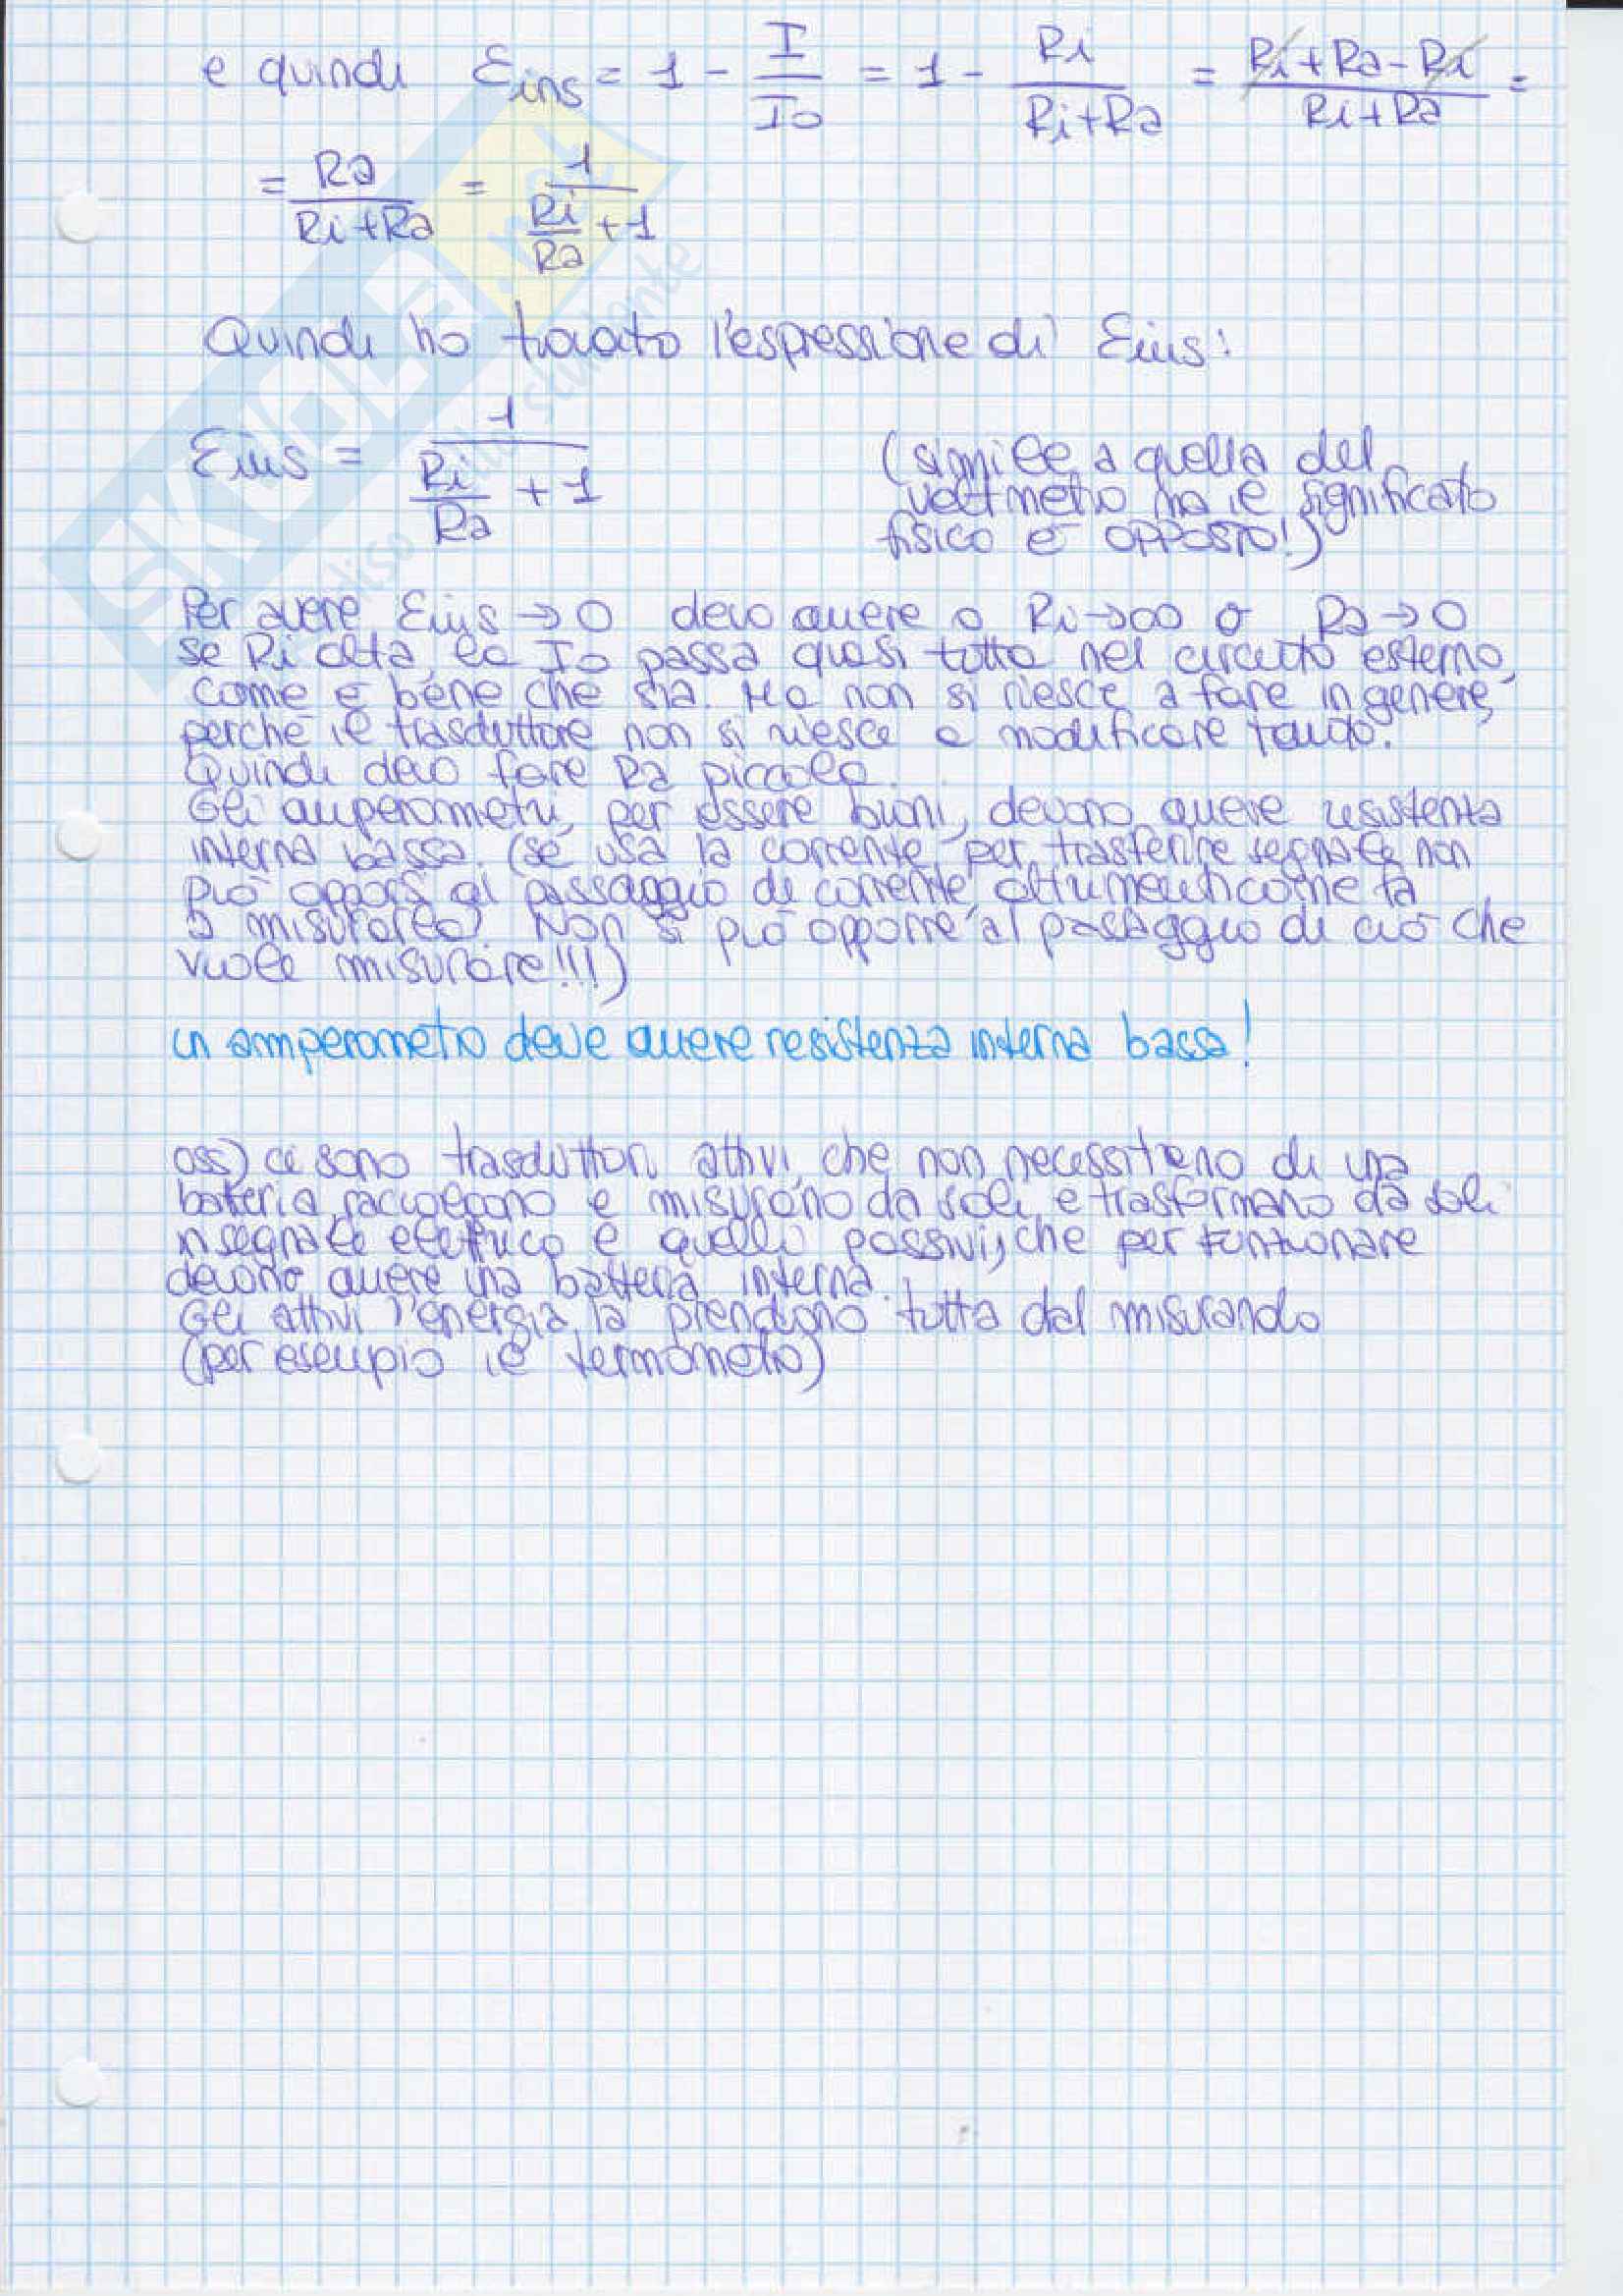 e quindi Eins = 1 - I/I0 = 1 - Ri/(Ri+Ra) = (Ri+Ra-Ri)/(Ri+Ra) =
= Ra/(Ri+Ra) = 1/(Ri/Ra + 1)
Quindi ho trovato l'espressione di Eins:
Eins = 1/(Ri/Ra + 1)
(simile a quella del
voltmetro ma il significato
fisico è opposto!)
Per avere Eins → 0 devo avere o Ri→∞ o Ra→0
se Ri alta, la I0 passa quasi tutta nel circuito esterno,
come è bene che sia. Ma non si riesce a fare in genere,
perché il trasduttore non si riesce a modificare tanto.
Quindi devo fare Ra piccola.
Gli amperometri, per essere buoni, devono avere resistenza
interna bassa. (se usa la corrente per trasferire segnale non
può opporsi al passaggio di corrente, altrimenti come fa
a misurarla?. Non si può opporre al passaggio di ciò che
vuole misurare!!!)
un amperometro deve avere resistenza interna bassa!
oss) ci sono trasduttori attivi, che non necessitano di una
batteria, raccolgono e misurano da soli, e trasformano da soli
in segnale elettrico e quelli passivi, che per funzionare
devono avere una batteria interna.
Gli attivi l'energia la prendono tutta dal misurando
(per esempio il termometro)
SKUOLA.net
paradiso dello studente